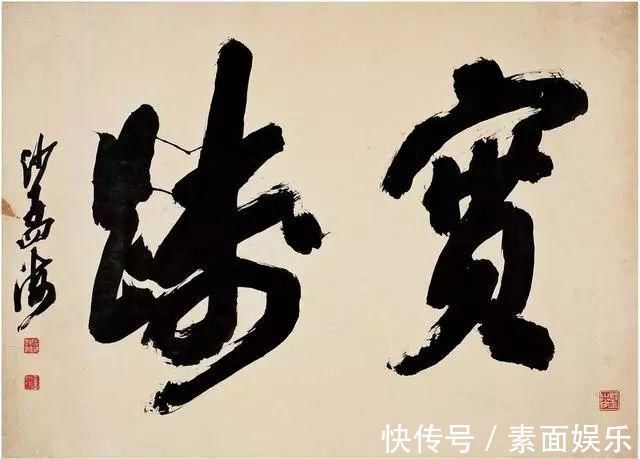 實踐
沙孟海
快传号 / 素面娱乐